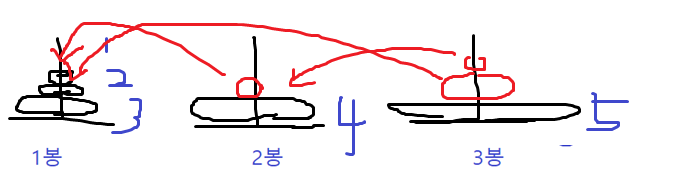 1
2
3
4
5
1봉 2봉 3봉